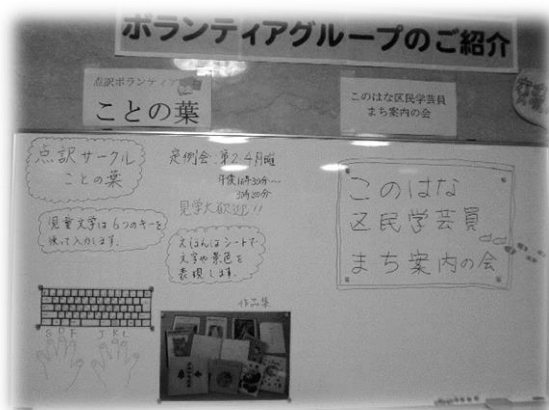 ボランティアグループのご紹介
点訳ボランティア
ことの葉
このはな区民学芸員
まち案内の会
点訳サークル
ことの葉
定例会:第2.4月曜
見学大歓迎!!
児童文学は6つのキーを
使って入力します。
えほんはシートで
文字や景色を
表現します。
作品集
S D F J K L
このはな
区民学芸員
まち案内の会